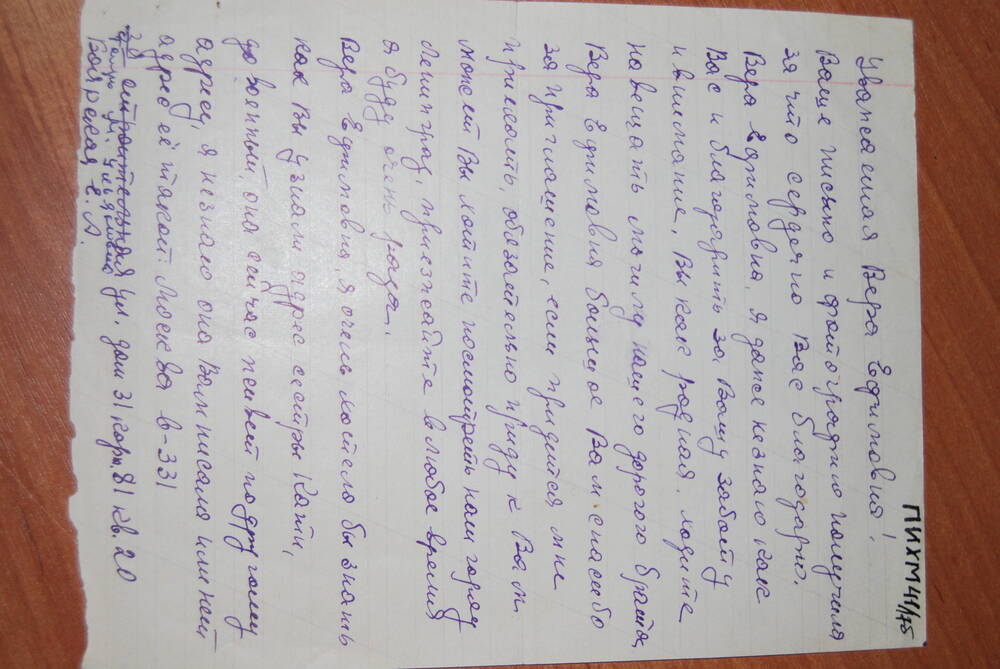 ПИХМ 41/175
Уважаемая Вера Ефимовна!
Ваше письмо и фотографию получила
за что сердечно Вас благодарю.
Вера Ефимовна, я даже незнаю как
Вас и благодарить за Вашу заботу
и внимание. Вы как родная. ходите
навещать могилу нашего дорогого брата.
Вера Ефимовна большое Вам спасибо
за приглашение, если придется мне
приехать, обязательно приду к Вам
может Вы хотите посмотреть наш город
Ленинград, приезжайте в любое время
я буду очень рада.
Вера Ефимовна, я очень хотела бы знать
как Вы узнали адрес сестры Кати,
до военный, она сейчас живет по другому
адресу, я незнаю она Вам писала или нет
адрес её такой: Москва В-331
строительная ул. дом 31 корп. 81 кв. 20
М. Ульяновна
Боярская Е. А.